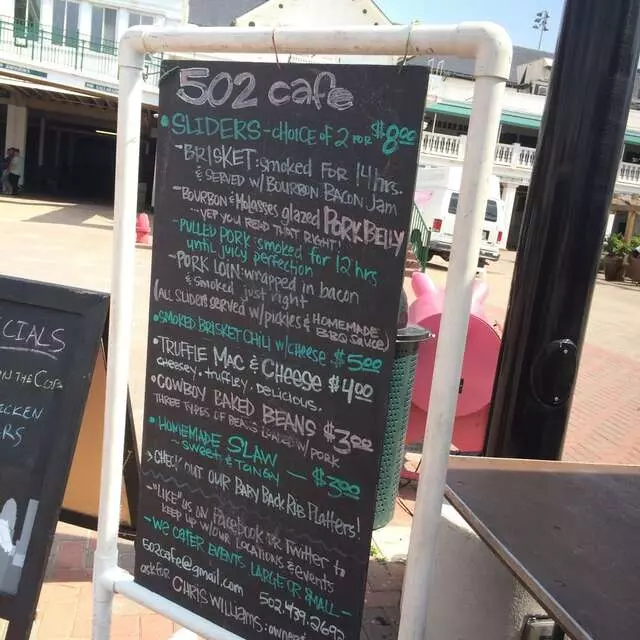 502 cafe
•SLIDERS-CHOICE of 2 FOR $8.00
-BRISKET: smoked FOR 14 hrs.
& SERVED W/ BOURBON BACON Jam
-BOURBON & Molasses glazed PORK BELLY
...YEP YOU READ THAT RIGHT!
-PULLED PORK smoked for 12 hrs
until juicy perfection
-PORK LOIN: wrapped in bacon
& smoked just right
(ALL SLIDERS SERVED w/ pickles & HOMEMADE
BBQ SAUCE)
•SMOKED BRISKET CHILI W/ CHEESE $5.00
•TRUFFLE MAC & CHEESE $4.00
CHEESEY. TRUFFLEY. DELICIOUS.
•COWBOY BAKED BEANS $3.00
THREE TYPES OF BEANS LOADED W/ PORK
•HOMEMADE SLAW
~ SWEET & TANGY — $3.00
>CHECK OUT OUR BABY BACK RIB PLATTERS!
-"LIKE" US ON Facebook OR Twitter to
KEEP UP W/ OUR LOCATIONS & EVENTS
-WE CATER EVENTS LARGE OR SMALL-
502cafe@gmail.com 502.439.2692
ask FOR CHRIS WILLIAMS: owner
CIALS
IN THE CAFE
ICKEN
RS